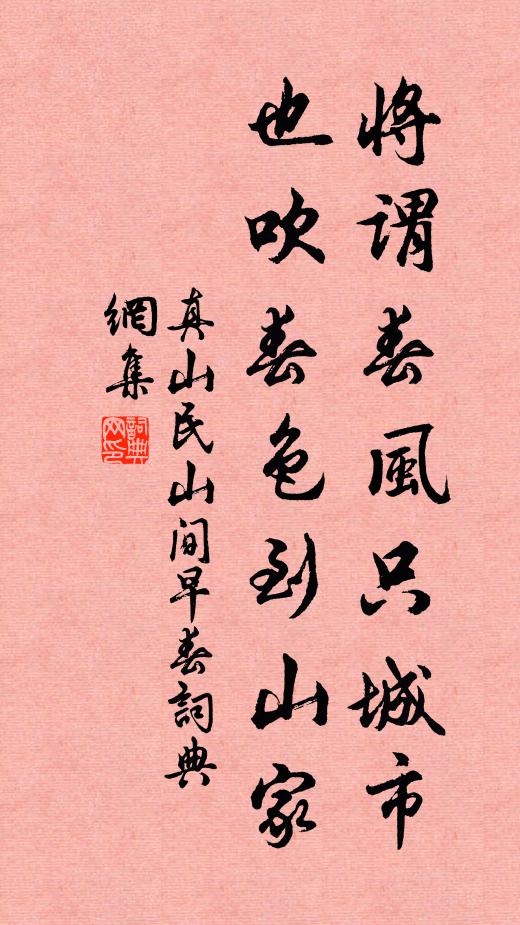 將謂春風只城市
也吹春色到山家
真山民山间早春詞典
網集
詞典
网印